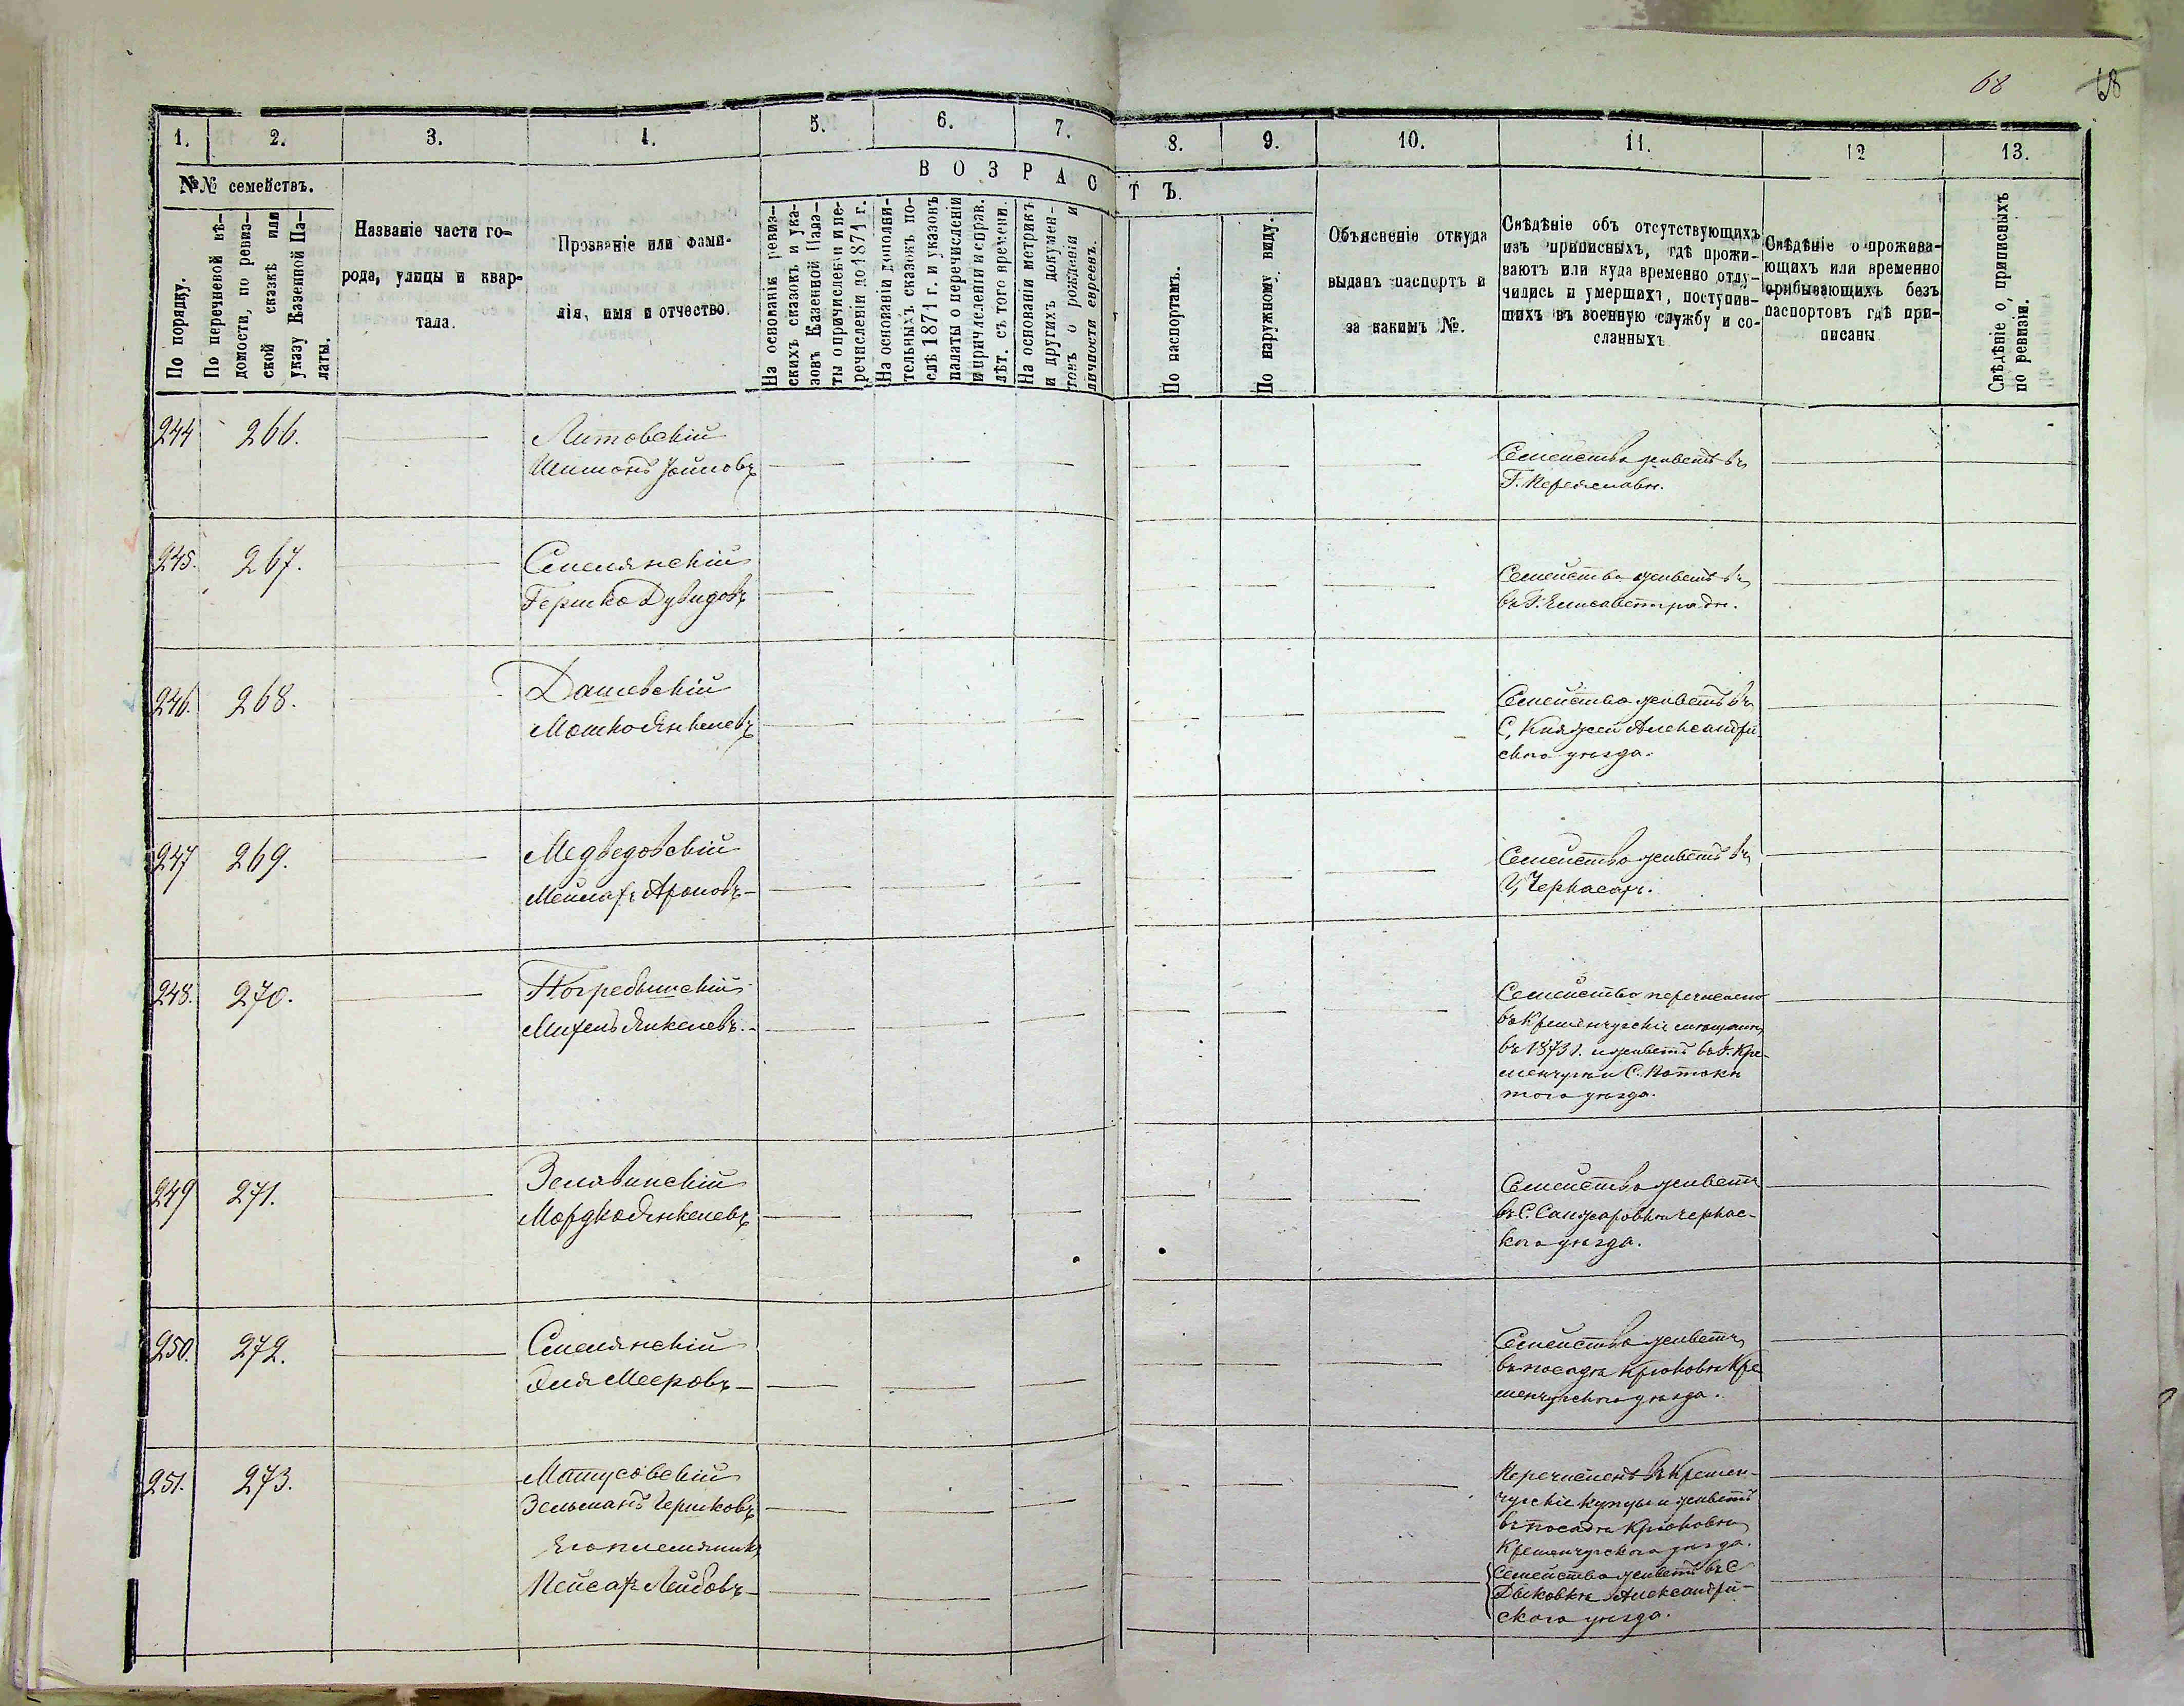 68 68
1. 2. 3. 4. 5. 6. 7. 8. 9. 10. 11. 12 13.
№№ семействъ.
ВОЗРАСТЪ.
По порядку.
По перечневой вѣ-
домости, по ревиз-
ской сказкѣ или
указу Казенной Па-
латы.
Названіе части го-
рода, улицы и квар-
тала.
Прозваніе или фами-
лія, имя и отчество.
На основаніи ревиз-
скихъ сказокъ и ука-
зовъ Казенной Пала-
ты о причисленіи и пе-
речисленіи до 1871 г.
На основаніи дополни-
тельныхъ сказокъ по-
слѣ 1871 г. и указовъ
палаты о перечисленіи
и причисленіи и справ.
лѣт. съ того времени.
На основаніи метрикъ
и другихъ докумен-
товъ о рожденіи и
личности евреевъ.
По паспортамъ.
По наружному виду.
Объясненіе откуда
выданъ паспортъ и
за какимъ №.
Свѣдѣніе объ отсутствующихъ
изъ приписныхъ, гдѣ прожи-
ваютъ или куда временно отлу-
чились и умершихъ, поступив-
шихъ въ военную службу и со-
сланныхъ
Свѣдѣніе о прожива-
ющихъ или временно
прибывающихъ безъ
паспортовъ гдѣ при-
писаны
Свѣдѣніе о приписныхъ
по ревизіи.
244 266. Литовскій
Шимонъ Іойновъ
Семейство живетъ въ
Г. Переяславѣ.
245. 267. Смелянскій
Гершко Дувидовъ
Семейство живетъ въ
въ Г. Елисаветградѣ.
246. 268. Дашевскій
Мошко Янкелевъ
Семейство живетъ въ
С. Княжей Александрій-
скаго уѣзда.
247 269. Медведовскій
Мейлахъ Ароновъ
Семейство живетъ въ
Г. Черкасахъ.
248. 270. Погребыискій
Михель Янкелевъ.
Семейство перечислено
въ Кременчугскіе мещане
въ 1873 г. и живетъ въ г. Кре-
менчугѣ и С. Потокѣ
того уѣзда.
249 271. Зелавинскій
Мордко Янкелевъ
Семейство живетъ
въ С. Санжаровкѣ Черкас-
каго уѣзда.
250. 272. Смелянскій
Эля Мееровъ
Семейство живетъ
въ посадѣ Крюковѣ Кре
менчугскаго уѣзда.
251. 273. Матусовскій
Зельманъ Гершковъ
Его племянникъ
Пейсахъ Лейбовъ
Перечисленъ въ Кремен-
чугскіе купцы и живетъ
въ посадѣ Крюковѣ
Кременчугскаго уѣзда.
Семейство живетъ въ С
Дыковкѣ Александрій-
скаго уѣзда.